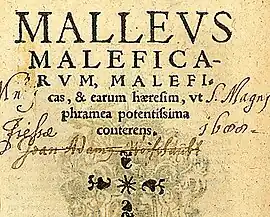 MALLEVS
MALEFICA-
RVM, MALEFI-
cas, & earum hæresim, vt
phramea potentissima
conterens.
S. Magn
1600
Joan Adam